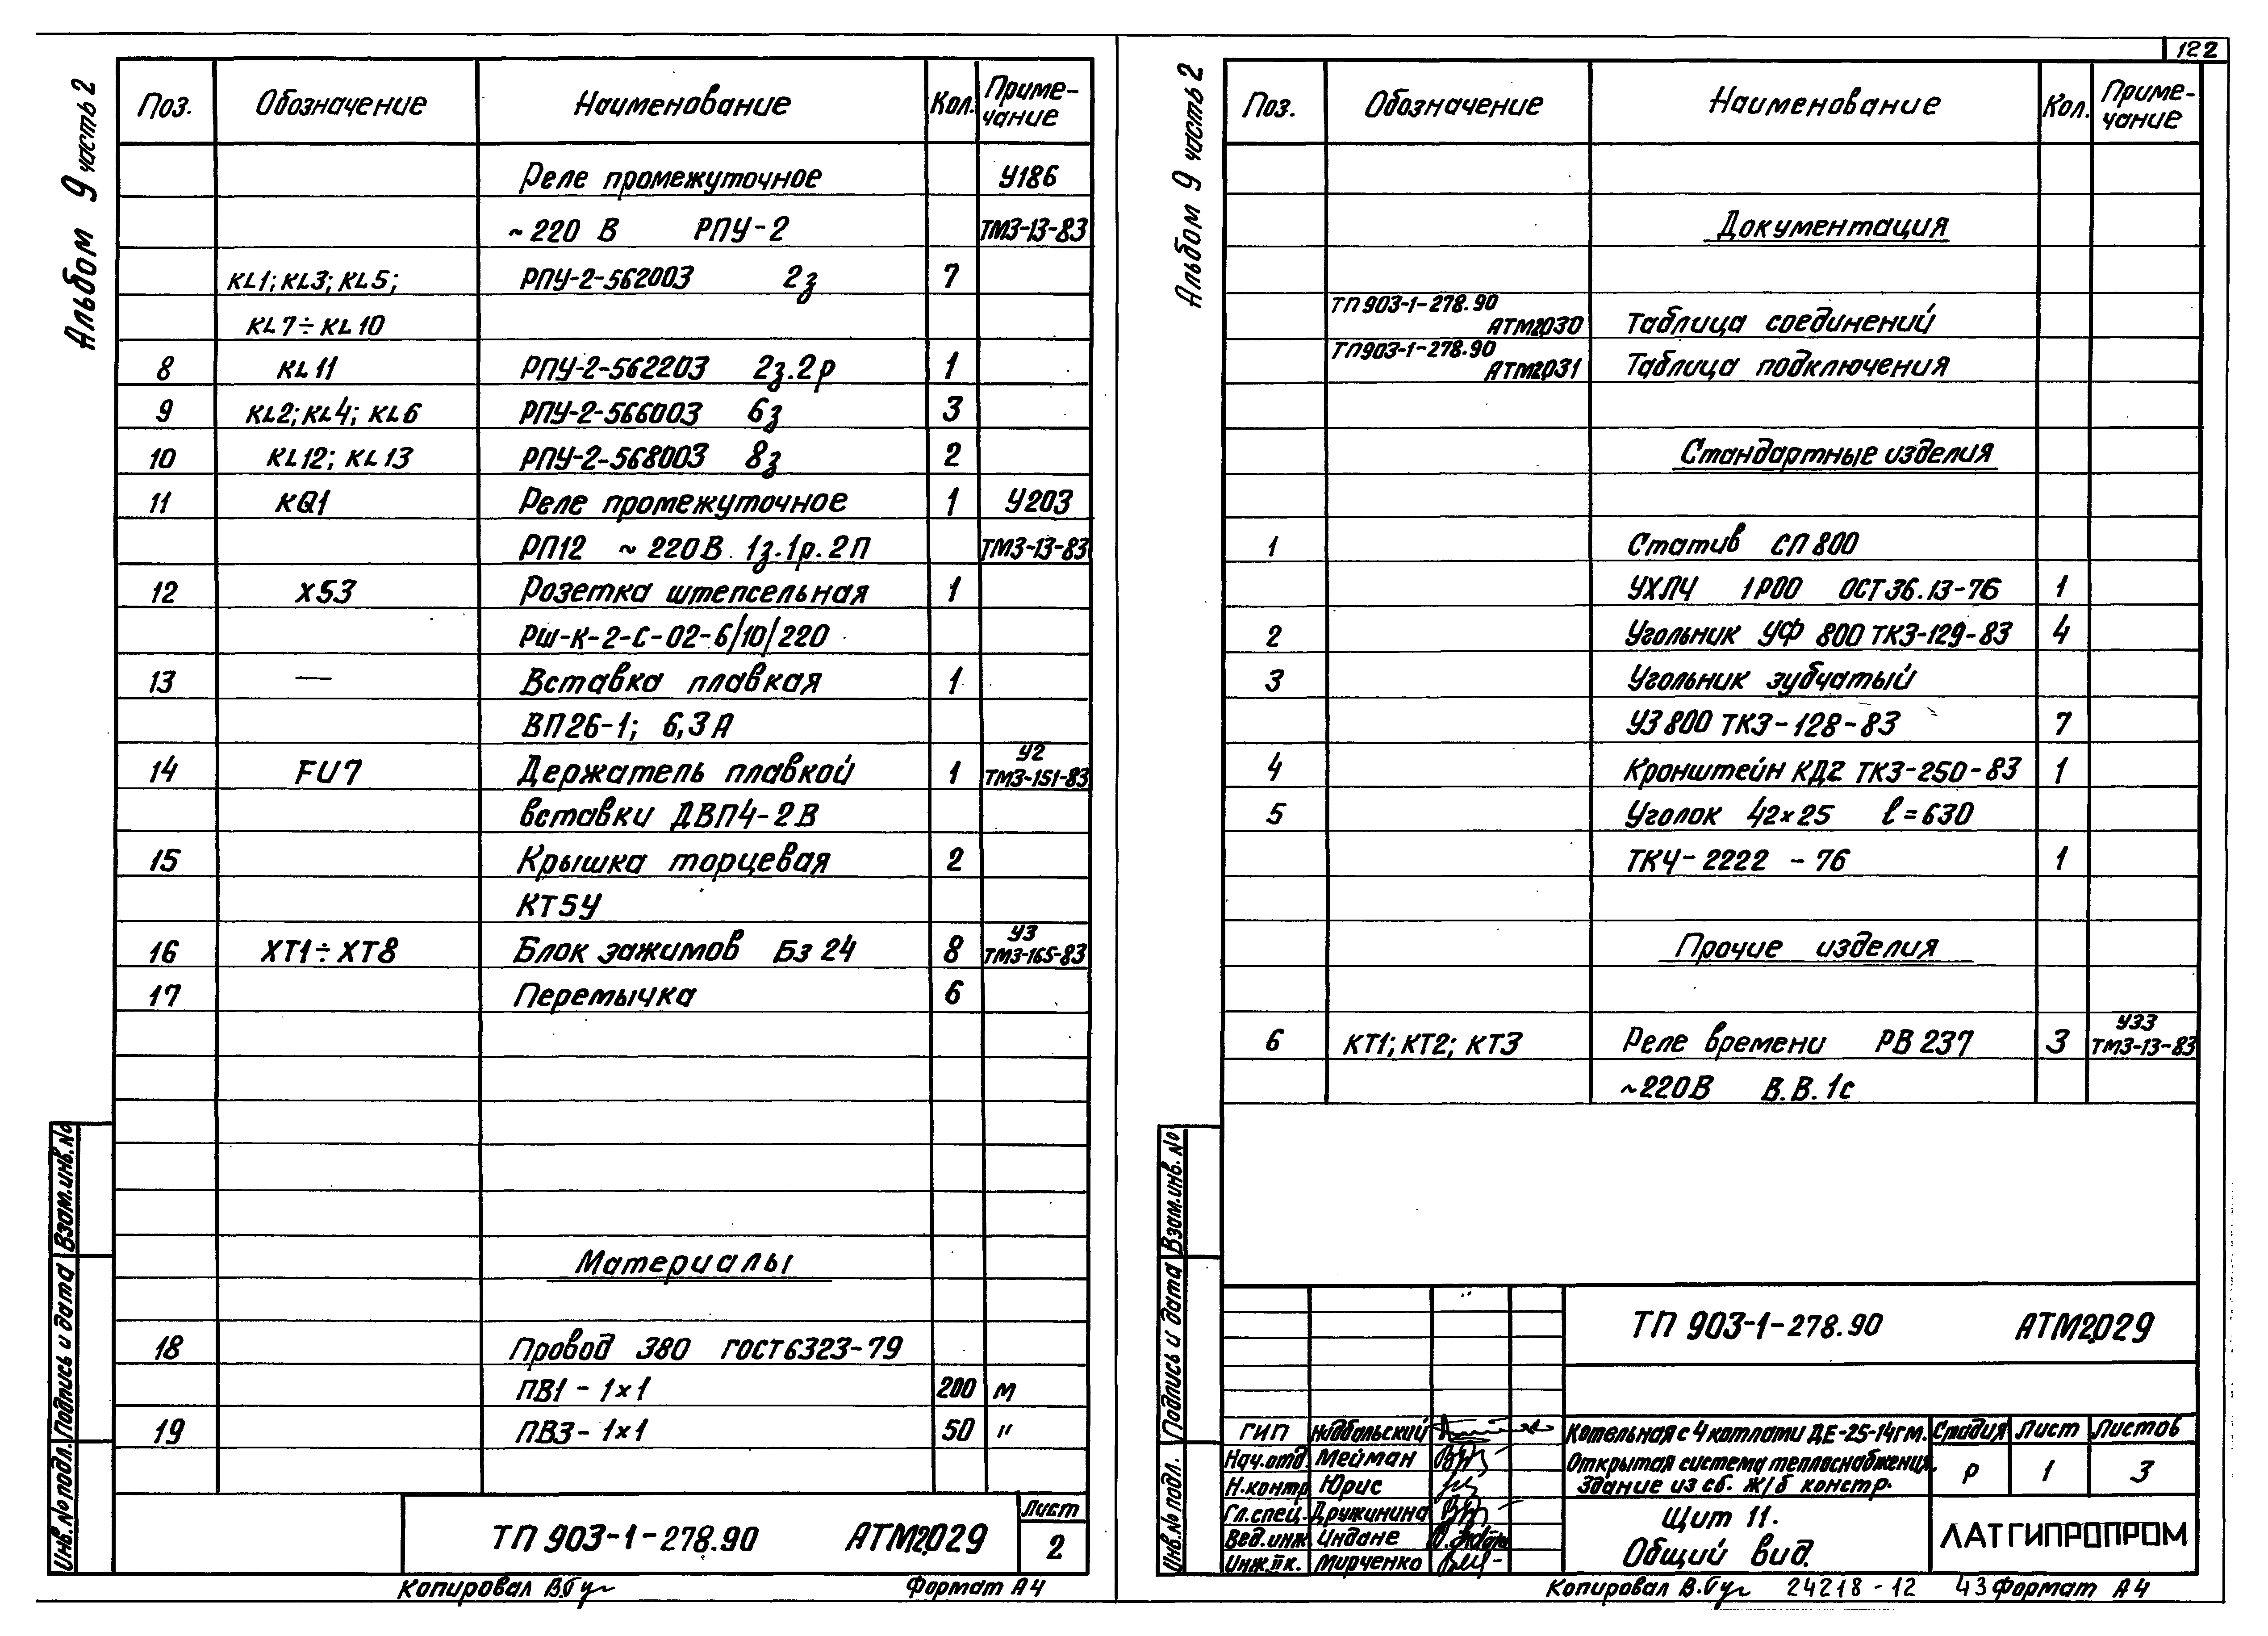 Альбом 9 часть 2
Поз. Обозначение Наименование Кол. Приме-
чание
Реле промежуточное У186
~220 В РПУ-2 ТМ3-13-83
KL1; KL3; KL5; РПУ-2-562003 2з 7
KL7÷KL10
8 KL11 РПУ-2-562203 2з.2р 1
9 KL2; KL4; KL6 РПУ-2-566003 6з 3
10 KL12; KL13 РПУ-2-568003 8з 2
11 KQ1 Реле промежуточное 1 У203
РП12 ~220В 1з.1р.2П ТМ3-13-83
12 XS3 Розетка штепсельная 1
РШ-К-2-С-02-6/10/220
13 — Вставка плавкая 1
ВП26-1; 6,3А
14 FU7 Держатель плавкой 1 У2 ТМ3-151-83
вставки ДВП4-2В
15 Крышка торцевая 2
КТ5У
16 XT1÷XT8 Блок зажимов Бз 24 8 У3 ТМ3-165-83
17 Перемычка 6
Материалы
18 Провод 380 ГОСТ6323-79
ПВ1 - 1×1 200 м
19 ПВ3 - 1×1 50 "
Взам.инв.№
Подпись и дата
Инв.№ подл.
ТП 903-1-278.90 АТМ2.029
Лист
2
Копировал Формат А4
122
Альбом 9 часть 2
Поз. Обозначение Наименование Кол. Приме-
чание
Документация
ТП903-1-278.90
АТМ2.030 Таблица соединений
ТП903-1-278.90
АТМ2.031 Таблица подключения
Стандартные изделия
1 Статив СП800
УХЛ4 IP00 ОСТ36.13-76 1
2 Угольник УФ 800 ТК3-129-83 4
3 Угольник зубчатый
УЗ 800 ТК3-128-83 7
4 Кронштейн КД2 ТК3-250-83 1
5 Уголок 42×25 ℓ=630
ТК4-2222-76 1
Прочие изделия
6 КТ1; КТ2; КТ3 Реле времени РВ 237 3 У33 ТМ3-13-83
~220В В.В. 1с
Взам.инв.№
Подпись и дата
Инв.№ подл.
ТП 903-1-278.90 АТМ2.029
ГИП
Нач.отд. Мейман
Н.контр Юрис
Гл.спец. Дружинина
Вед.инж. Индане
Инж.IIк. Мирченко
Котельная с 4 котлами ДЕ-25-14ГМ.
Открытая система теплоснабжения.
Здание из сб. ж/б констр.
Стадия Лист Листов
Р 1 3
Щит 11.
Общий вид.
ЛАТГИПРОПРОМ
Копировал 24218-12 43 Формат А4